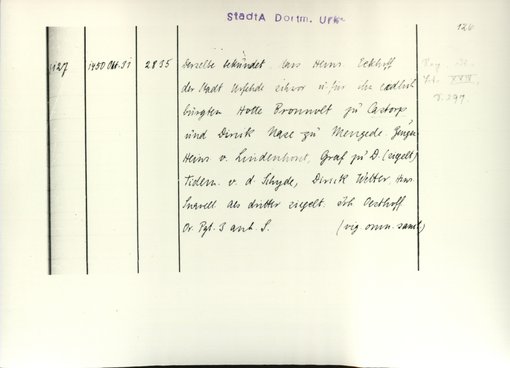 StadtA Dortm. Urk.
126
127 1450 Okt. 31 2835 Derselbe bekundet, dass Heinr. Eckhoff
der Stadt Urfehde schwor u. für ihn
bürgten Hotte Bronnvolt zu Castorp
und Dirick Nase zu Mengede. Zeugen
Heinr. v. Lindenhorst, Graf zu D. (siegelt)
Tidem. v. d. Schyde, Dirick Welter, Heinr.
als dritter siegelt Oesthoff
Or. Pgt. 3 anh. S. (vig. omn. sanct.)
XXVI,
S. 297